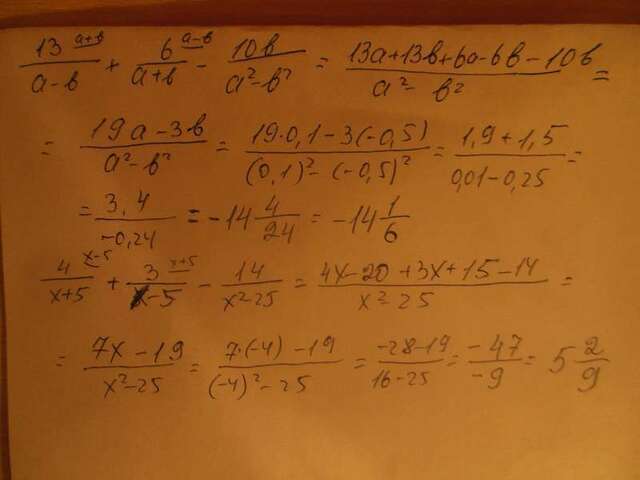 13^(a+b)/(a-b) + 6^(a-b)/(a+b) - 10b/(a²-b²) = (13a+13b+6a-6b-10b)/(a²-b²) =
= (19a-3b)/(a²-b²) = (19·0,1-3(-0,5))/((0,1)²-(-0,5)²) = (1,9+1,5)/(0,01-0,25) =
= 3,4/(-0,24) = -14 4/24 = -14 1/6
4^(x-5)/(x+5) + 3^(x+5)/(x-5) - 14/(x²-25) = (4x-20+3x+15-14)/(x²-25) =
= (7x-19)/(x²-25) = (7·(-4)-19)/((-4)²-25) = (-28-19)/(16-25) = -47/-9 = 5 2/9